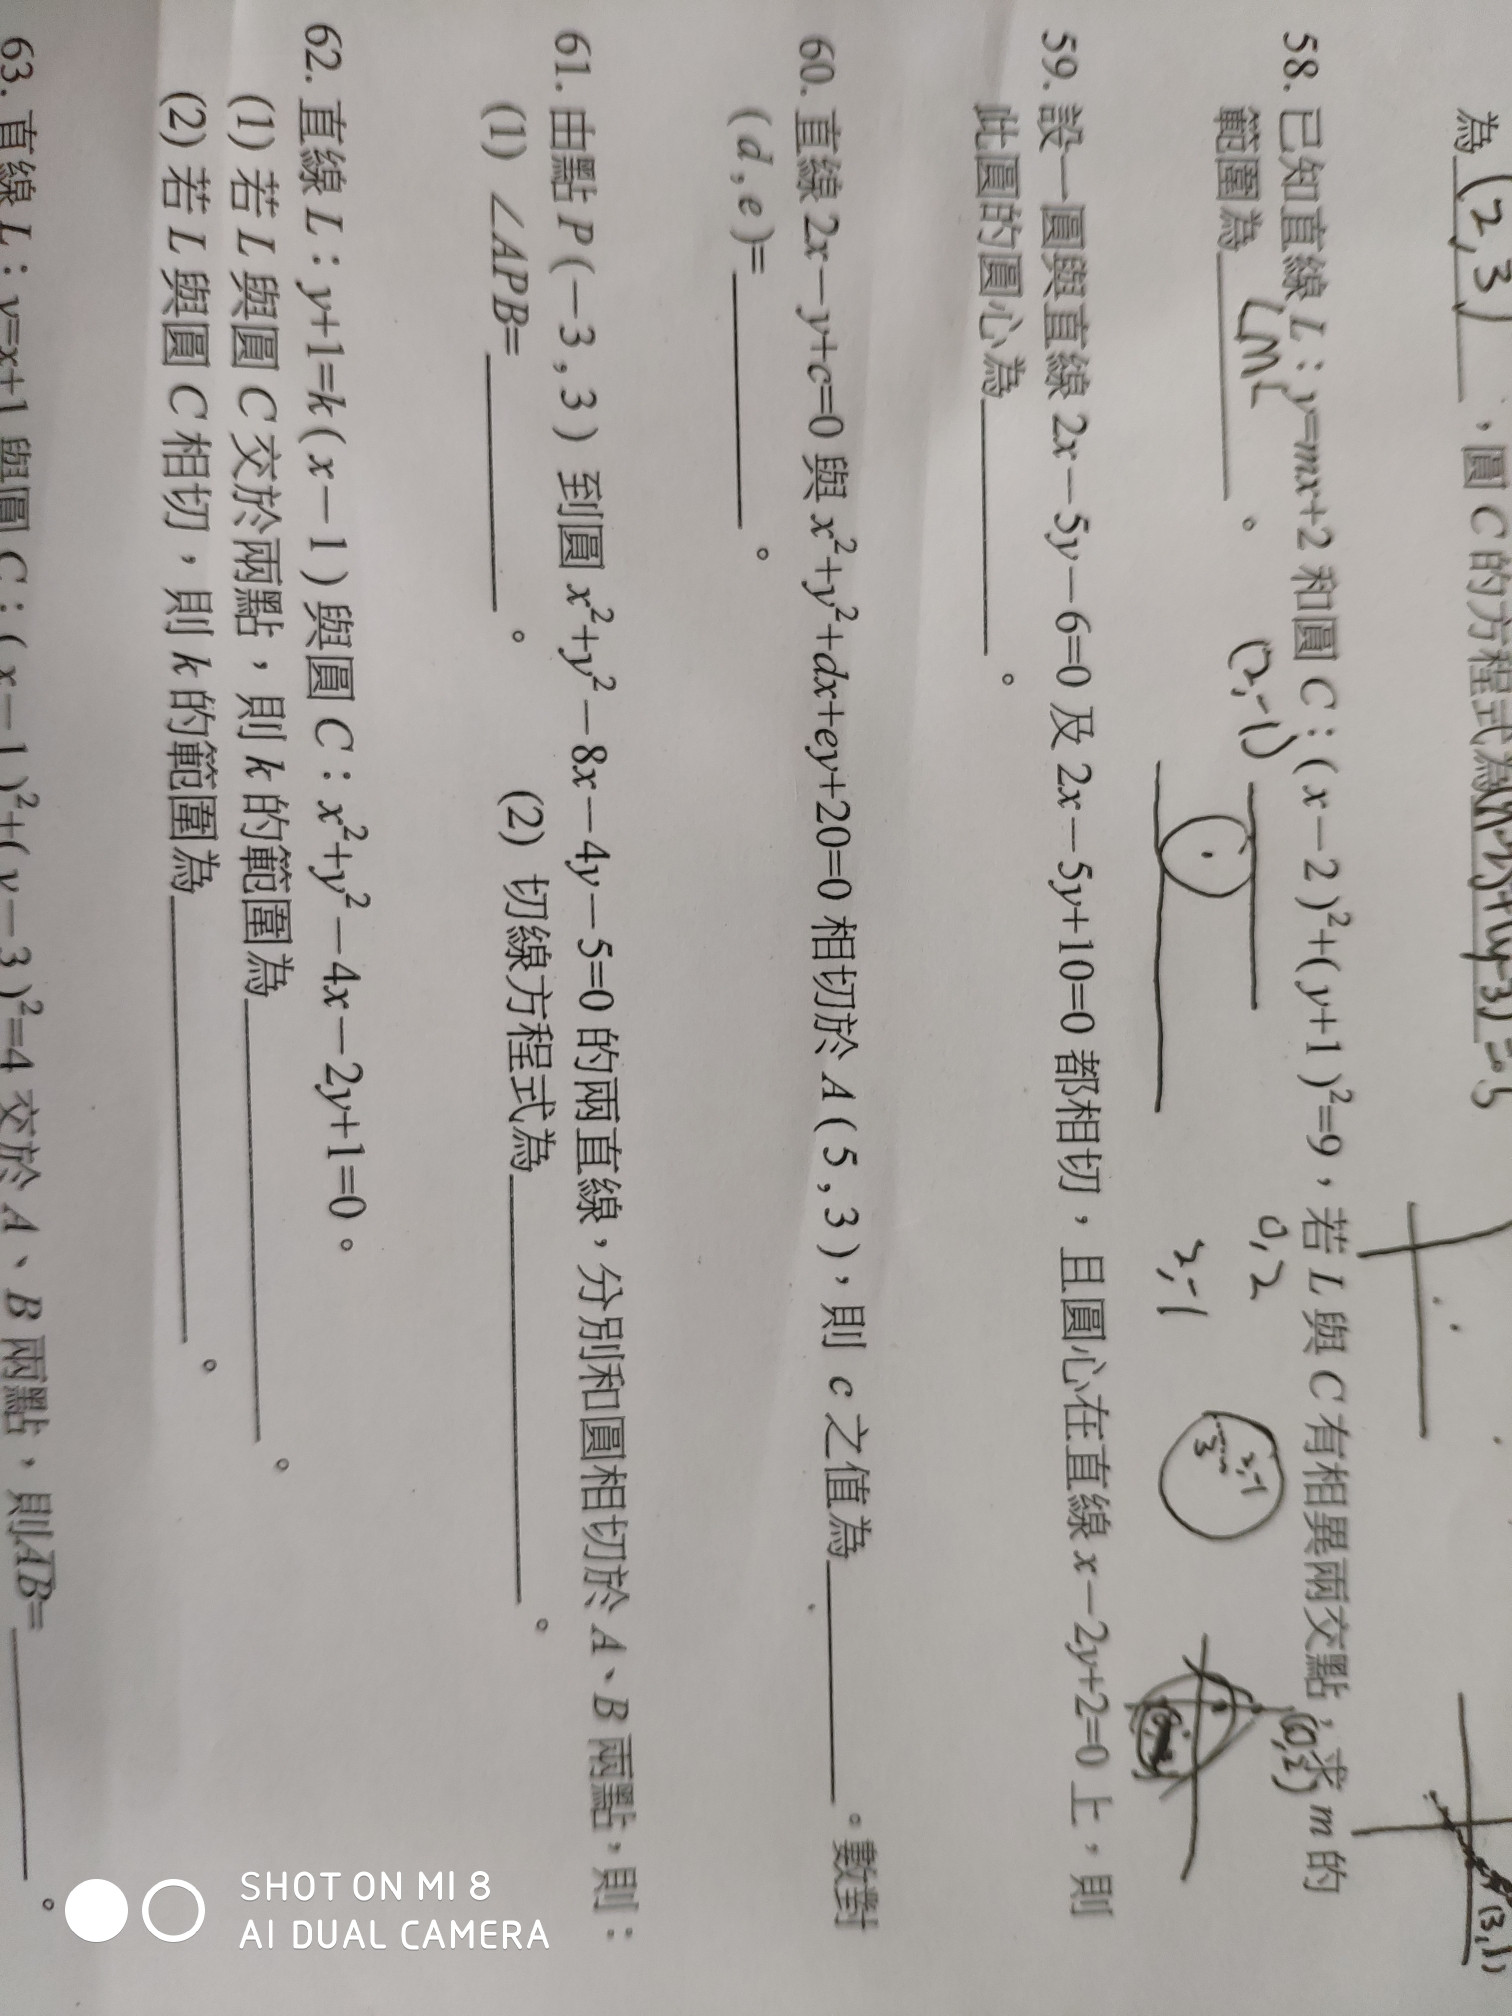 為 (2,3) ,圓 C 的方程式為
58. 已知直線 L:y=mx+2 和圓 C:(x-2)²+(y+1)²=9,若 L 與 C 有相異兩交點,求 m 的
範圍為
(2,-1)
0,2
(0,2)
2,-1
2,-1
3
(3,1)
59. 設一圓與直線 2x-5y-6=0 及 2x-5y+10=0 都相切,且圓心在直線 x-2y+2=0 上,則
此圓的圓心為 。
60. 直線 2x-y+c=0 與 x²+y²+dx+ey+20=0 相切於 A(5,3),則 c 之值為 。數對
(d,e)= 。
61. 由點 P(-3,3) 到圓 x²+y²-8x-4y-5=0 的兩直線,分別和圓相切於 A、B 兩點,則:
(1) ∠APB= 。 (2) 切線方程式為 。
62. 直線 L:y+1=k(x-1) 與圓 C:x²+y²-4x-2y+1=0。
(1) 若 L 與圓 C 交於兩點,則 k 的範圍為 。
(2) 若 L 與圓 C 相切,則 k 的範圍為 。
63. 直線 L:y=x+1 與圓 C:(x-1)²+(y-3)²=4 交於 A、B 兩點,則AB= 。
SHOT ON MI 8
AI DUAL CAMERA